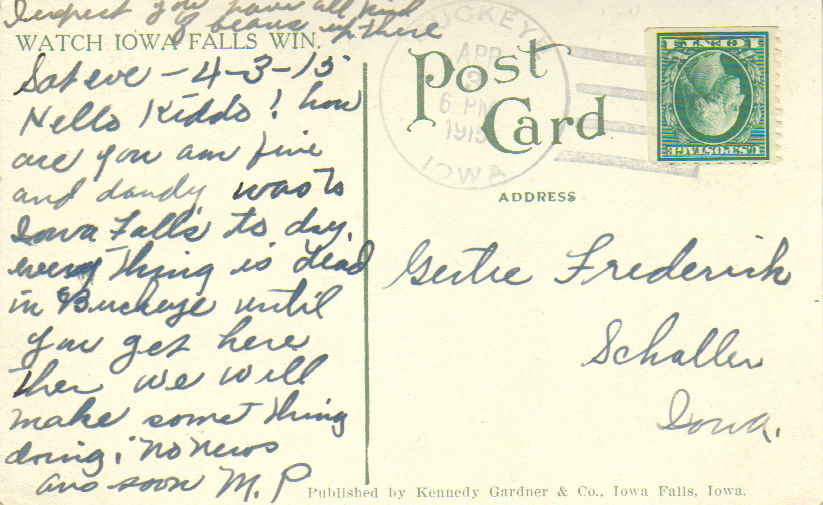 I expect you have all kind
of beaus up there
WATCH IOWA FALLS WIN.
Sat eve - 4-3-15
Hello Kiddo! how
are you am fine
and dandy was to
Iowa Falls to day.
every thing is dead
in Buckeye until
you get here
then we will
make some thing
doing. no news
ans soon M. P
BUCKEYE
APR
3
6 PM
1915
IOWA
Post
Card
U.S. POSTAGE
ADDRESS
Gertie Frederick
Schaller
Iowa.
Published by Kennedy Gardner & Co., Iowa Falls, Iowa.